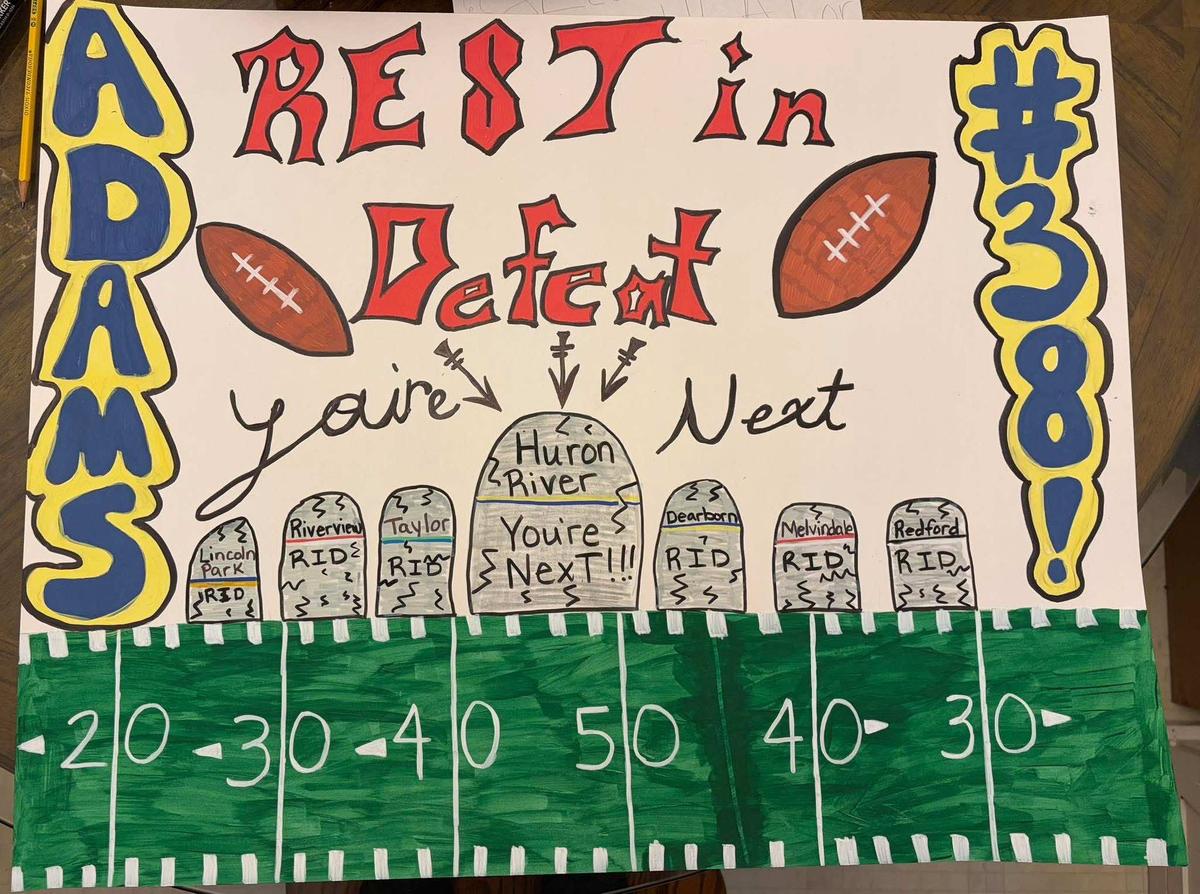 ADAMS
REST in
Defeat
You're Next
#38!
Huron
River
You're
NexT!!!
Lincoln
Park
RID
Riverview
RID
Taylor
RID
Dearborn
RID
Melvindale
RID
Redford
RID
20 30 40 50 40 30